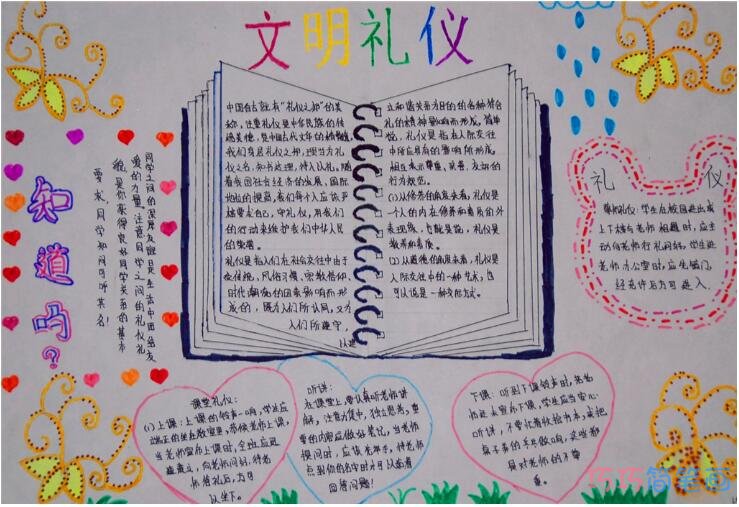 文明礼仪
中国自古就有"礼仪之邦"的美
称，注重礼仪是中华民族的传
统美德，是中国古代文明的精髓
我们身居礼仪之邦，理当为礼
仪之名，知书达理，待人以礼。随
着我国社会经济的发展，国际
地位的提高，我们每个人应该严
格要求自己，守礼仪，用我们
的行动来维护我们中华人民
的尊严。
礼仪是指人们在社会交往中由于
受传统，风俗习惯，宗教信仰，
时代潮流的因素影响而形
成的，既为人们所认同，又为
人们所遵守，
以建
立和谐关系为目的的各种符合
礼的精神
礼仪是指在人际交往
中所应具有的
相互表示尊重，友好的
行为规范。
(1)从修养的角度来看，礼仪是
一个人的内在修养和素质的外
表现。也就是说，礼仪是
教养和素质。
(2)从道德的角度来看，礼仪是
人际交往中的一种艺术，也
可以说是一种交际方式。
知道吗？
同学之间的深厚友谊是生活中团结友
爱的力量。注意同学之间的礼仪礼
貌，是你获得良好同学关系的基本
要求。同学知间可所其名！
礼仪
尊师礼仪：学生在校园进出或
上下楼与老师相遇时，应主
动向老师行礼问好。学生进
老师办公室时，应先敲门，
经允许后方可进入。
课堂礼仪：
(1)上课：上课的铃声一响，学生应
端正的坐在教室里，恭候老师上课，
当老师宣布上课时，全班应迅
速直立，向老师问好，待老
师答礼后，方可
以坐下。
听讲：
在课堂上，要认真听老师讲
解，注意力集中，独立思考，重
要的内容应做好笔记，当老师
提问时，应该先举手，待老师
点到你的名字时才可以站着
回答问题！
下课：听到下课铃声时，若老
师还未宣布下课，学生应当安心
听讲，不要忙着收拾书本，或把
桌子弄的乒乓做响，这些都
是对老师的不尊
重。
巧巧简笔画